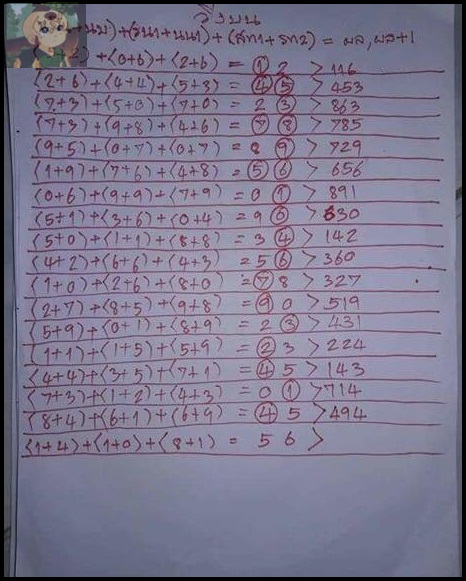 วิ่งบน
นบ)+(รน1+นน1)+(สท1+รท2) = ผล,ผล+1
+(0+6)+(2+6) = 1 2 > 116
(2+6)+(4+4)+(5+3) = 4 5 > 453
(7+3)+(5+0)+(7+0) = 2 3 > 863
(7+3)+(9+8)+(4+6) = 7 8 > 785
(9+5)+(0+7)+(0+7) = 8 9 > 729
(1+9)+(7+6)+(4+8) = 5 6 > 656
(0+6)+(9+9)+(7+9) = 0 1 > 891
(5+1)+(3+6)+(0+4) = 9 0 > 630
(5+0)+(1+1)+(8+8) = 3 4 > 142
(4+2)+(6+6)+(4+3) = 5 6 > 360
(1+0)+(2+6)+(8+0) = 7 8 > 327
(2+7)+(8+5)+(9+8) = 9 0 > 519
(5+9)+(0+1)+(8+9) = 2 3 > 431
(1+1)+(1+5)+(5+9) = 2 3 > 224
(4+4)+(3+5)+(7+1) = 4 5 > 143
(7+3)+(1+2)+(4+3) = 0 1 > 714
(8+4)+(6+1)+(6+9) = 4 5 > 494
(1+4)+(1+0)+(8+1) = 5 6 >